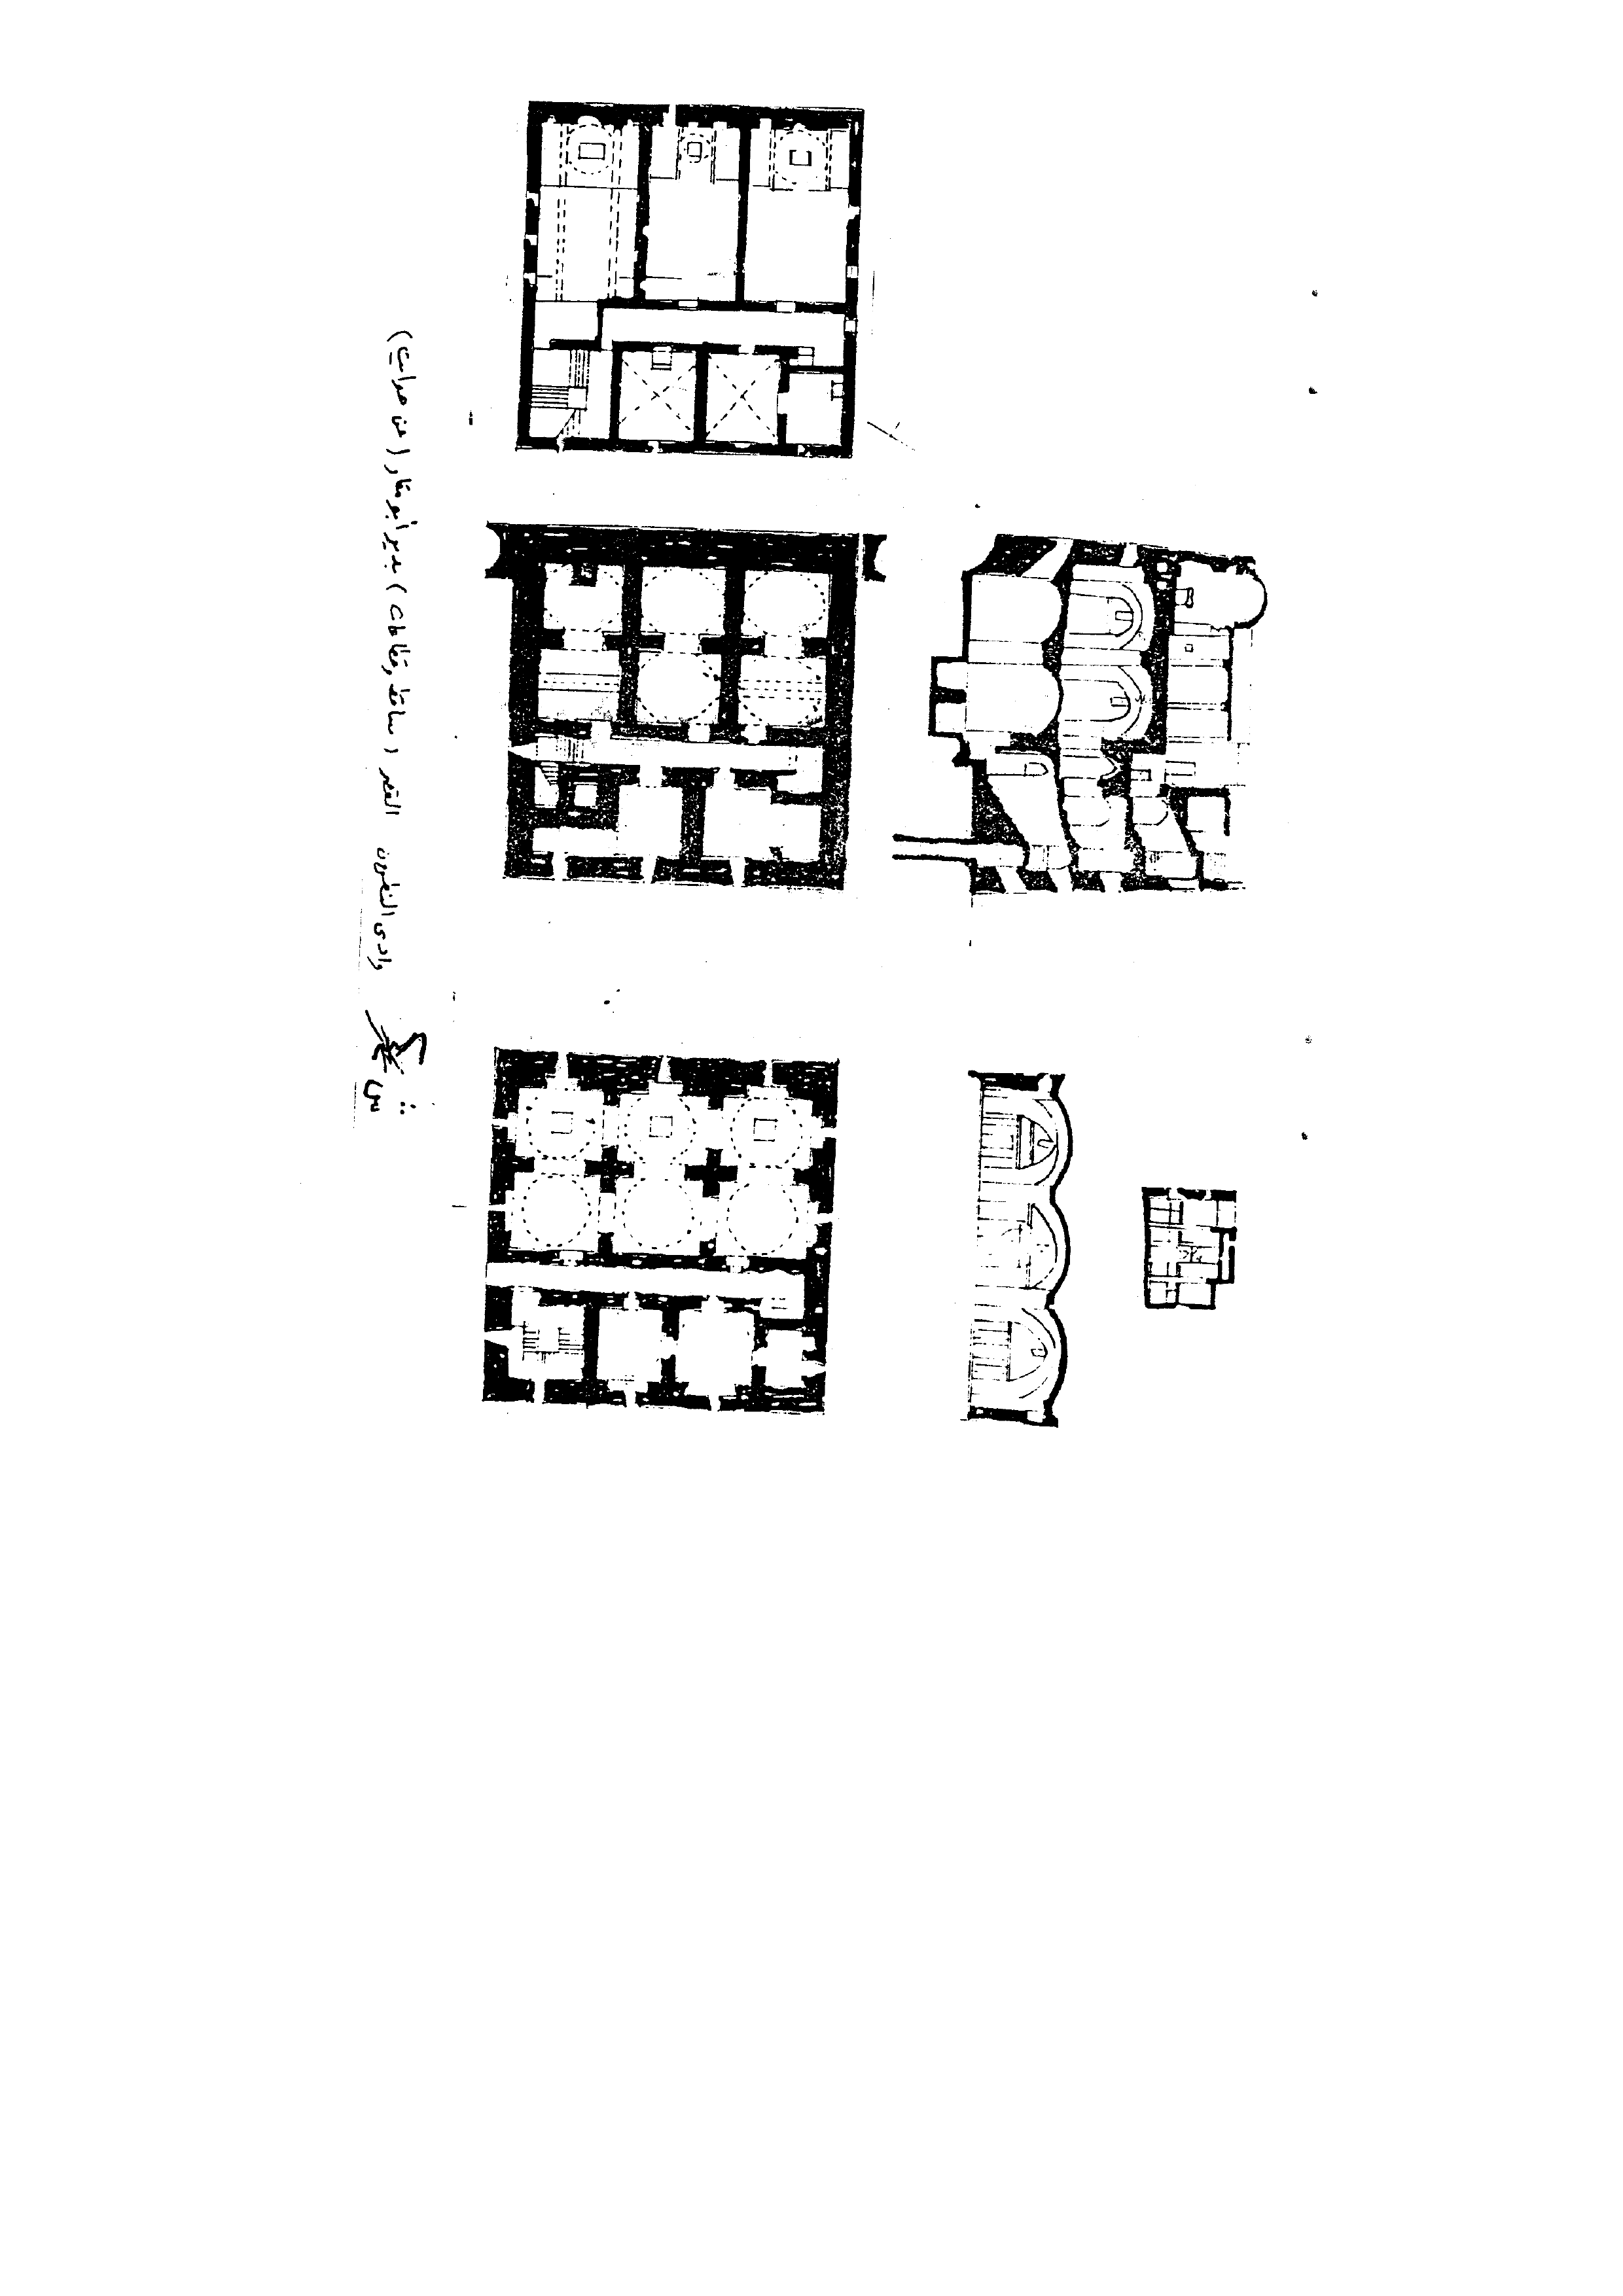 وادى النطرون القصر (مساقط وقطاعات) بدير أبو مقار (عن